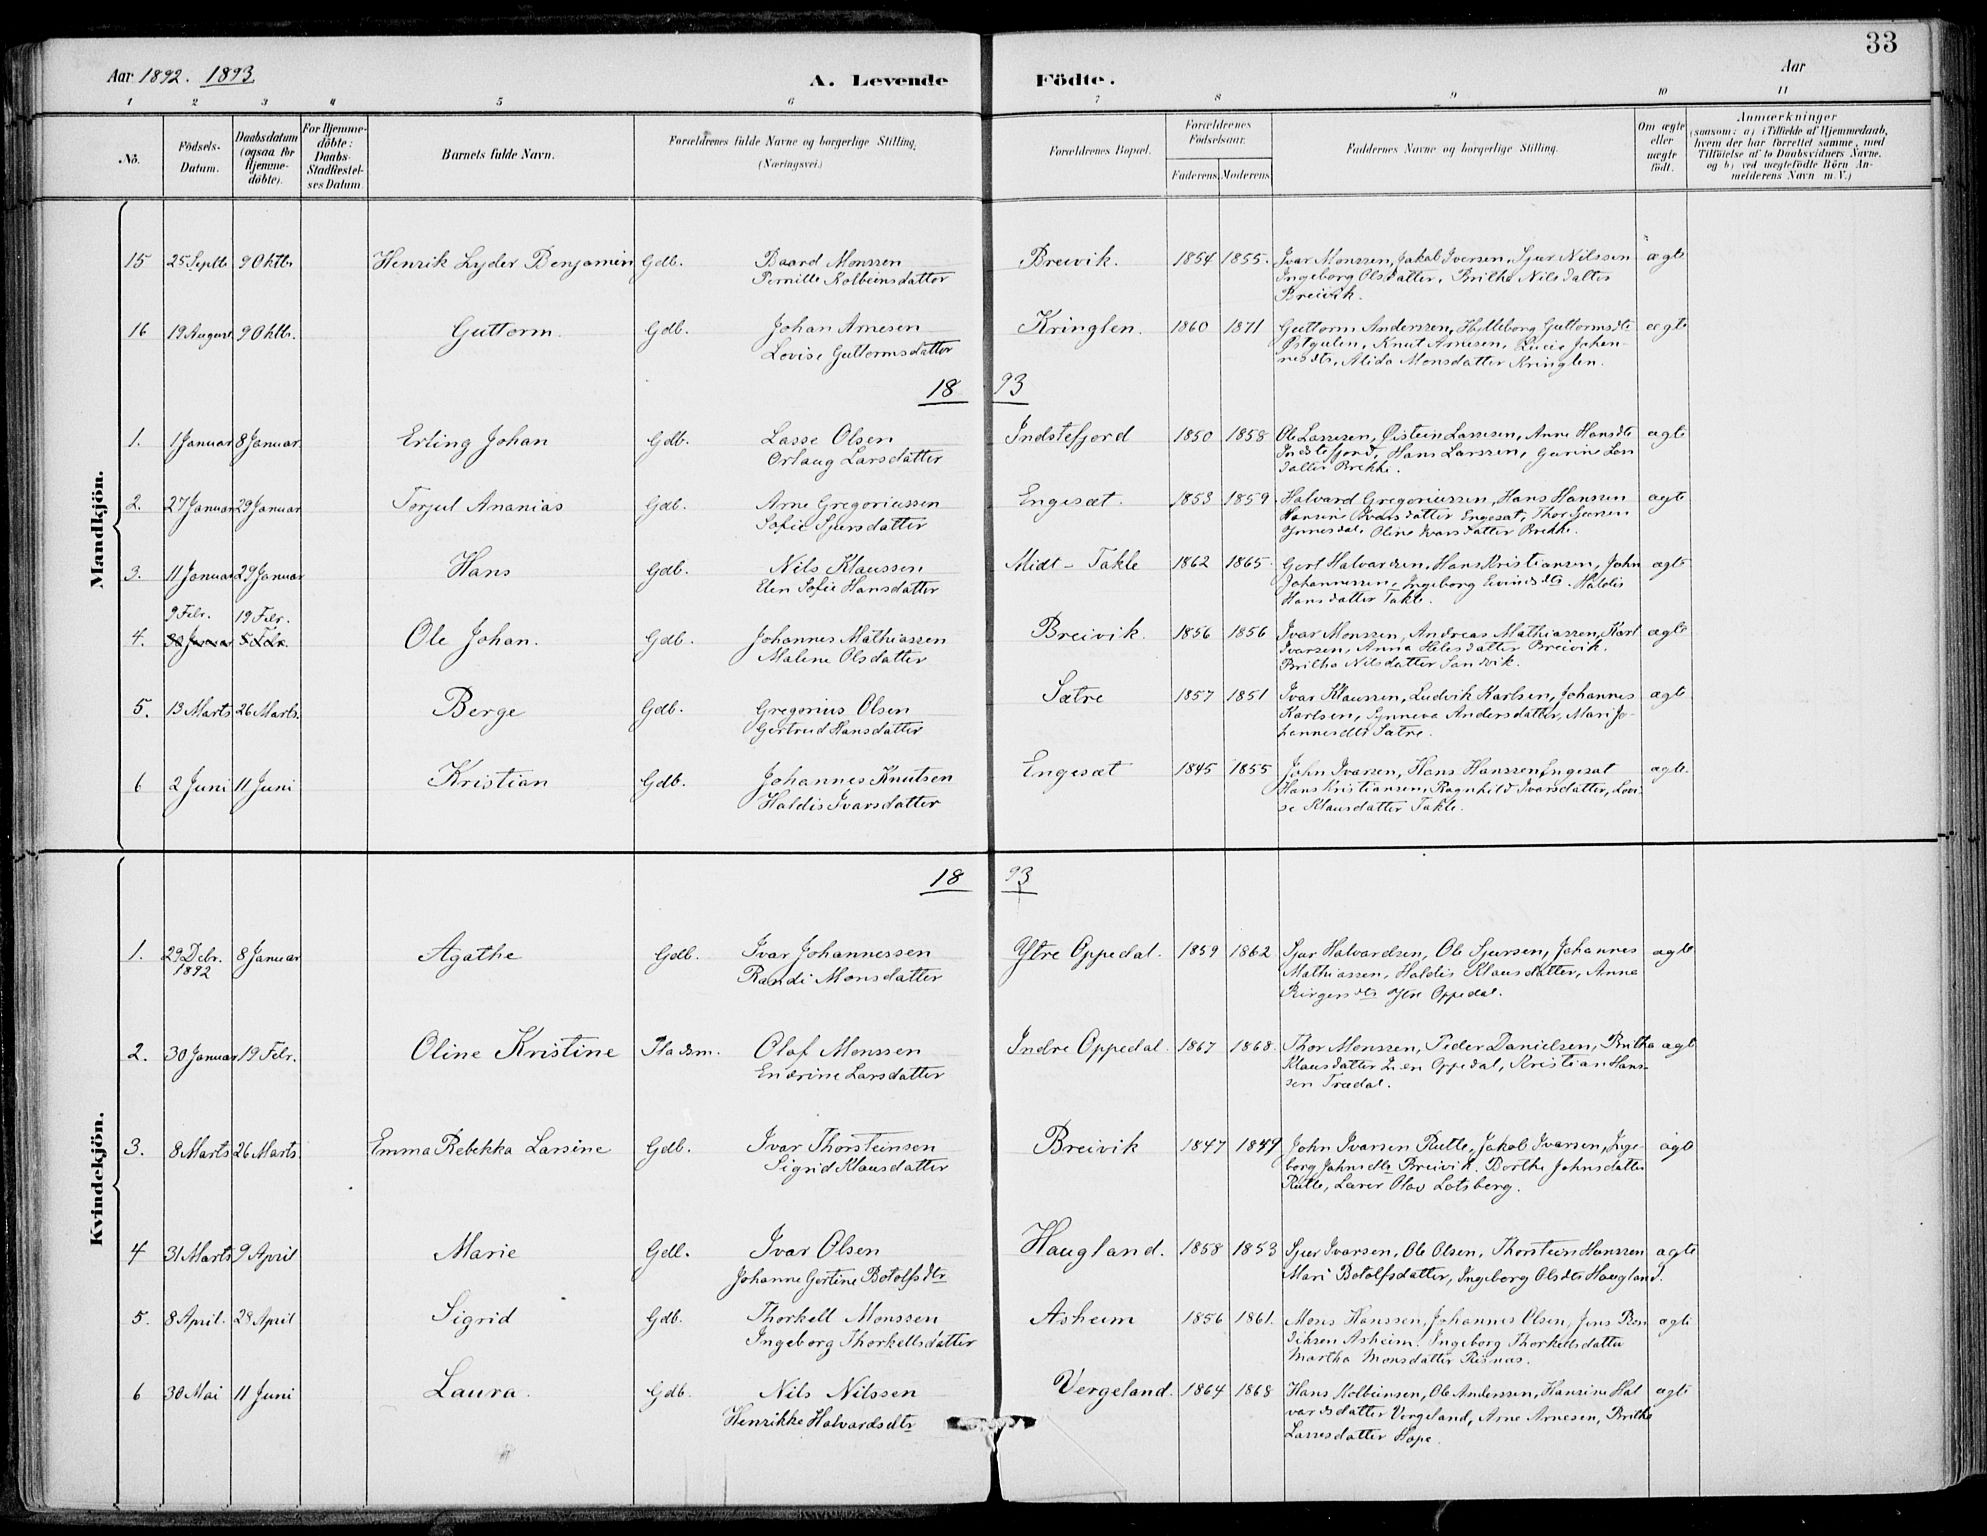 33
Aar 1892. 1893
A. Levende Födte.
Aar
1 2 3 4 5 6 7 8 9 10 11
No.
Födsels-
Datum.
Daabsdatum
(ogsaa for
Hjemme-
döbte).
For Hjemme-
döbte:
Daabs-
Stadfæstel-
ses Datum.
Barnets fulde Navn.
Forældrenes fulde Navne og borgerlige Stilling,
(Næringsvei.)
Forældrenes Bopæl.
Forældrenes
Födselsaar.
Faderens Moderens
Faddernes Navne og borgerlige Stilling.
Om ægte
eller
uægte
födt.
Anmærkninger
(saasom: a) i Tilfælde af Hjemmedaab,
hvem der har forrettet samme, med
Tilföielse af to Daabsvidners Navne,
og b) ved uægtefödte Börn An-
melderens Navn m. V.)
Mandkjön.
15 25 Septb 9 Oktb. Henrik Lyder Benjamin Gdb. Baard Monssen Breivik. 1854 1855. Ivar Monssen, Jakob Iversen, Sjur Nilssen ægte
Pernille Kolbeinsdatter Ingeborg Olsdatter, Britha Nilsdatter
Breivik.
16 19 August 9 Oktb. Guttorm. Gdb. Johan Arnesen Kringlen. 1860 1871 Guttorm Anderssen, Guttormsdt ægte
Lovise Guttormsdatter Østgulen, Knut Arnesen, Lucie Johan-
nesdtr, Alida Monsdatter Kringlen.
18 93
1. 1 Januar 8 Januar. Erling Johan Gdb. Lasse Olsen Indstefjord 1850 1858 Ole Lassesen, Øistein Lassesen, Anne Hansdtr ægte
Orlaug Larsdatter Indstefjord, Hans Larssen, Gurine Lars
datter Brekke.
2. 27 Januar 29 Januar Torjul Ananias Gdb. Arne Gregoriussen Engesæt 1853 1859. Halvard Gregoriussen, Hans Hanssen ægte
Sofie Sjursdatter Hansine Ivarsdatter Engesæt, Thor Iversen
Ynnesdal, Oline Ivarsdatter Brekke.
3. 11 Januar 29 Januar Hans Gdb. Nils Klaussen Midt-Takle 1862 1865. Gert Halvardsen, Hans Kristiansen, John ægte
Elen Sofie Hansdatter Johannessen, Ingeborg Eivindsdtr. Haldis
Hansdatter Takle.
9 Febr. 19 Febr.
4. 30 Januar 5 Febr. Ole Johan. Gdb. Johannes Mathiassen Breivik. 1856 1856 Ivar Monssen, Andreas Mathiassen, Karl ægte
Malene Olsdatter Ivarsen, Anna Helesdatter Breivik.
Britha Nilsdatter Sandvik.
5. 13 Marts 26 Marts. Berge Gdb. Gregorius Olsen Sætre 1857 1851 Ivar Klaussen, Ludvik Karlsen, Johannes ægte
Gertrud Hansdatter Karlsen, Synneva Andersdatter, Mari Jo-
hannesdtr Sætre.
6 2 Juni 11 Juni Kristian Gdb. Johannes Knutsen Engesæt 1845 1855 John Ivarsen, Hans Hanssen Engesæt ægte.
Haldis Ivarsdatter Hans Kristiansen, Ragnhild Ivarsdatter, Lovi-
se Klausdatter Takle.
Kvindekjön.
18 93
1. 29 Debr. 8 Januar Agathe Gdb. Ivar Johannessen Ytre Oppedal. 1859 1862 Sjur Halvardsen, Ole Sjursen, Johannes ægte
1892 Randi Monsdatter Mathiassen, Haldis Klausdatter, Anna
Birgersdtr Ytre Oppedal.
2. 30 Januar 19 Febr. Oline Kristine Pladsm. Olaf Monssen Indre Oppedal. 1867 1868. Thor Monssen, Peder Danielsen, Britha ægt
Endrine Larsdatter Klausdatter Oppedal, Kristian Hans-
sen Trædal.
3. 8 Marts 26 Marts Emma Rebekka Larsine Gdb. Ivar Thorsteinsen Breivik 1847 1849 John Ivarsen Rutle, Jakob Ivarsen, Inge- ægte
Sigrid Klausdatter borg Johnsdtr Breivik. Borthe Johnsdatter
Rutle, Lærer Olav Lotsberg.
4 31 Marts 9 April Marie Gdb. Ivar Olsen Haugland. 1858 1853 Sjur Ivarsen, Ole Olsen, Thorstein Hanssen ægte
Johanne Gertine Botolfsdtr Mari Botolfsdatter, Ingeborg Olsdtr Haugland.
5. 8 April. 28 April Sigrid Gdb. Thorkell Monssen Asheim 1856 1861. Mons Hanssen, Johannes Olsen, Jens Ben ægte
Ingeborg Thorkellsdatter dihsen Asheim. Ingeborg Thorkellsdatter
Martha Monsdatter Risnæs.
6 30 Mai 11 Juni Laura. Gdb. Nils Nilssen Vergeland. 1864 1868 Hans Kolbeinsen, Ole Anderssen, Hansine Hal ægte
Henrikke Halvardsdtr vardsdatter Vergeland, Arne Arnesen, Brithe
Lassesdatter Hope.